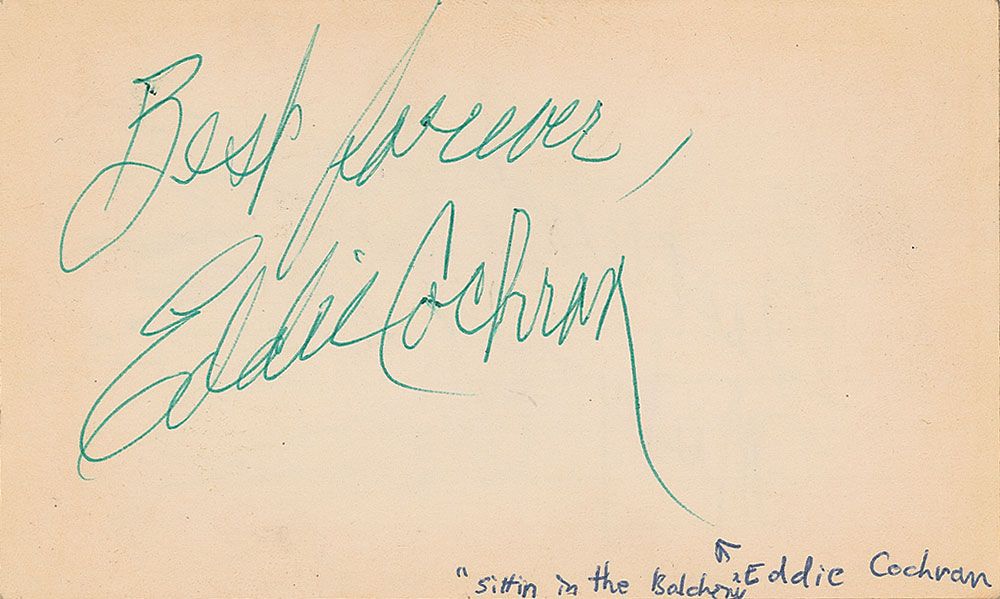 Best forever,
Eddie Cochran
"sittin in the Balchony" Eddie Cochran